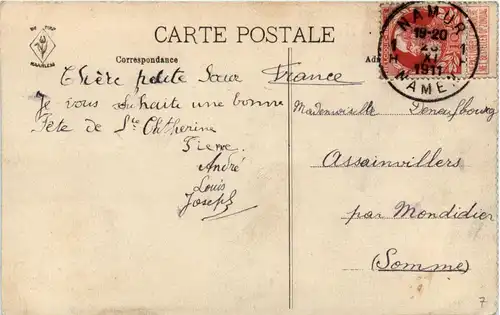 CARTE POSTALE
Correspondance
Chère petite Sœur France
Je vous souhaite une bonne
Fête de Ste Chtherine
Pierre
André
Louis
Joseph
NAMUR
19-20
1 23 1
XI
1911
NAMEN
Mademoiselle Deneufbourg
Assainvillers
par Mondidier
(Somme)
7